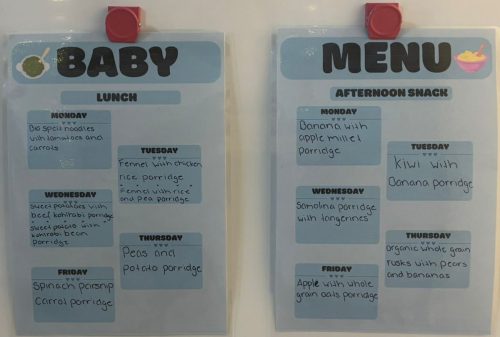 BABY
LUNCH
MONDAY
Bio spelt noodles
with tomatoes and
carrots
TUESDAY
Fennel with chicken
rice porridge
Fennel with rice
and pea porridge
WEDNESDAY
Sweet potatoes with
beef kohlrabi porridge
Sweet potato with
kohlrabi bean
porridge
THURSDAY
Peas and
potato porridge
FRIDAY
Spinach parsnip
Carrot porridge
MENU
AFTERNOON SNACK
MONDAY
Banana with
apple millet
porridge
TUESDAY
Kiwi with
Banana porridge
WEDNESDAY
Semolina porridge
with tangerines
THURSDAY
Organic whole grain
rusks with pears
and bananas
FRIDAY
Apple with whole
grain oats porridge